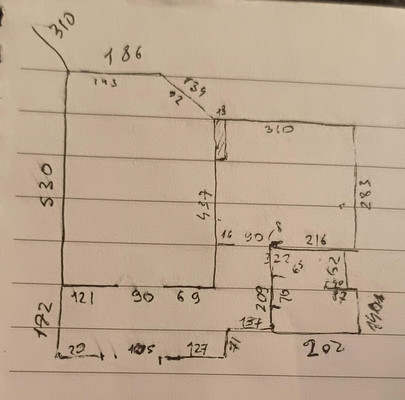 310
186
143
139
92
18
310
530
437
283
16
90
8
216
322
65
62
121
90
69
209
70
172
137
71
20
105
127
202